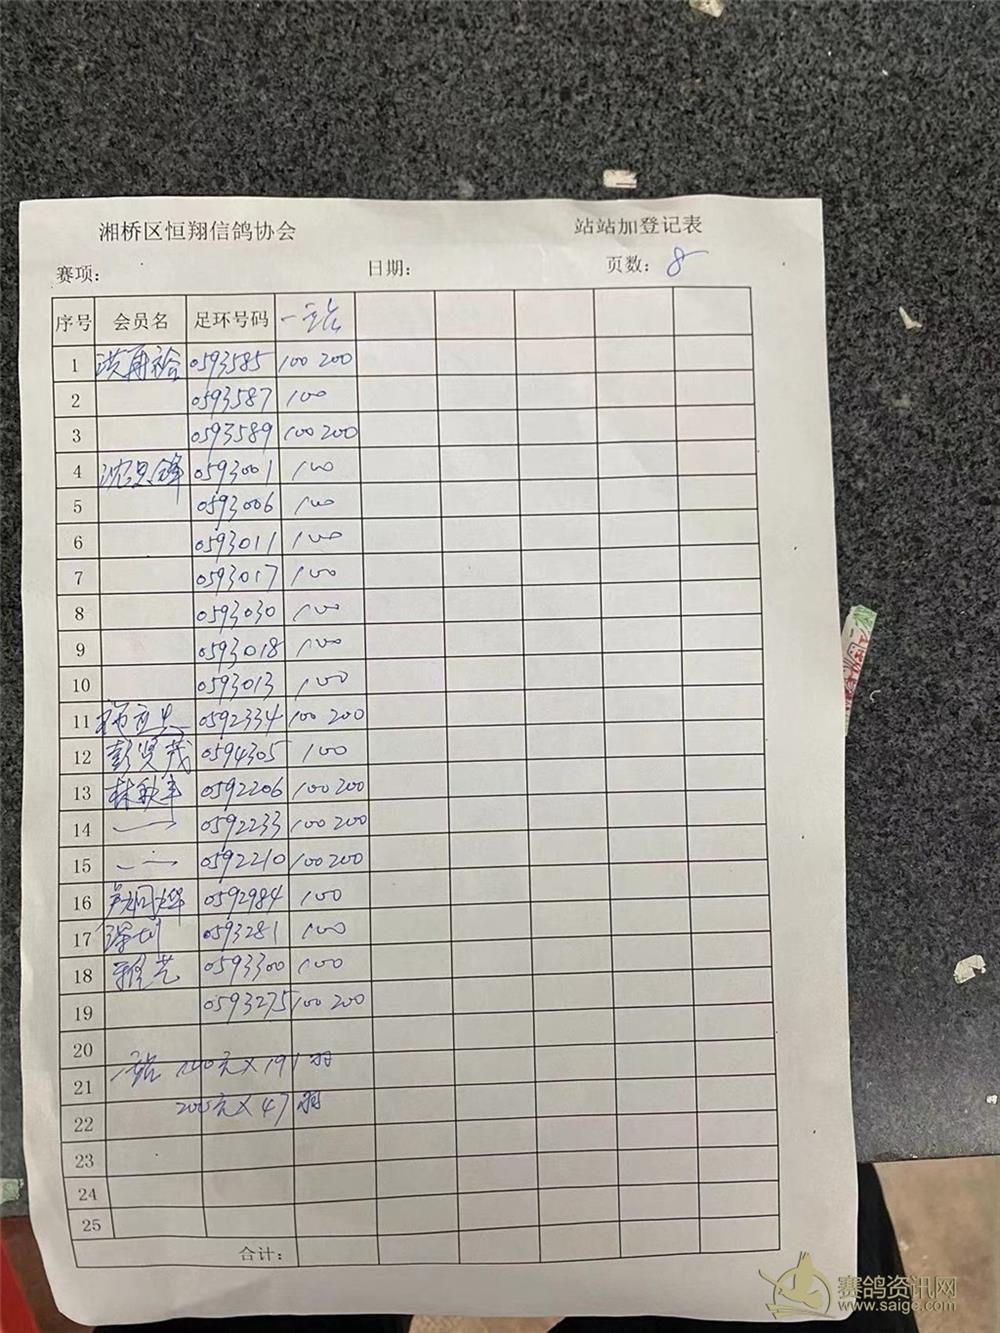 湘桥区恒翔信鸽协会 站站加登记表
赛项: 日期: 页数: 8
序号 会员名 足环号码 一站
1 洪再裕 0593585 100 200
2 0593587 100
3 0593589 100 200
4 沈思锋 0593001 100
5 0593006 100
6 0593011 100
7 0593017 100
8 0593030 100
9 0593018 100
10 0593013 100
11 0592334 100 200
12 彭贤茂 0594305 100
13 林 0592206 100 200
14 0592233 100 200
15 0592210 100 200
16 0592984 100
17 深圳 0593281 100
18 雅艺 0593300 100
19 0593275 100 200
20
21 一站 100元×191羽
22 200元×47羽
23
24
25
合计:
赛鸽资讯网
www.saige.com